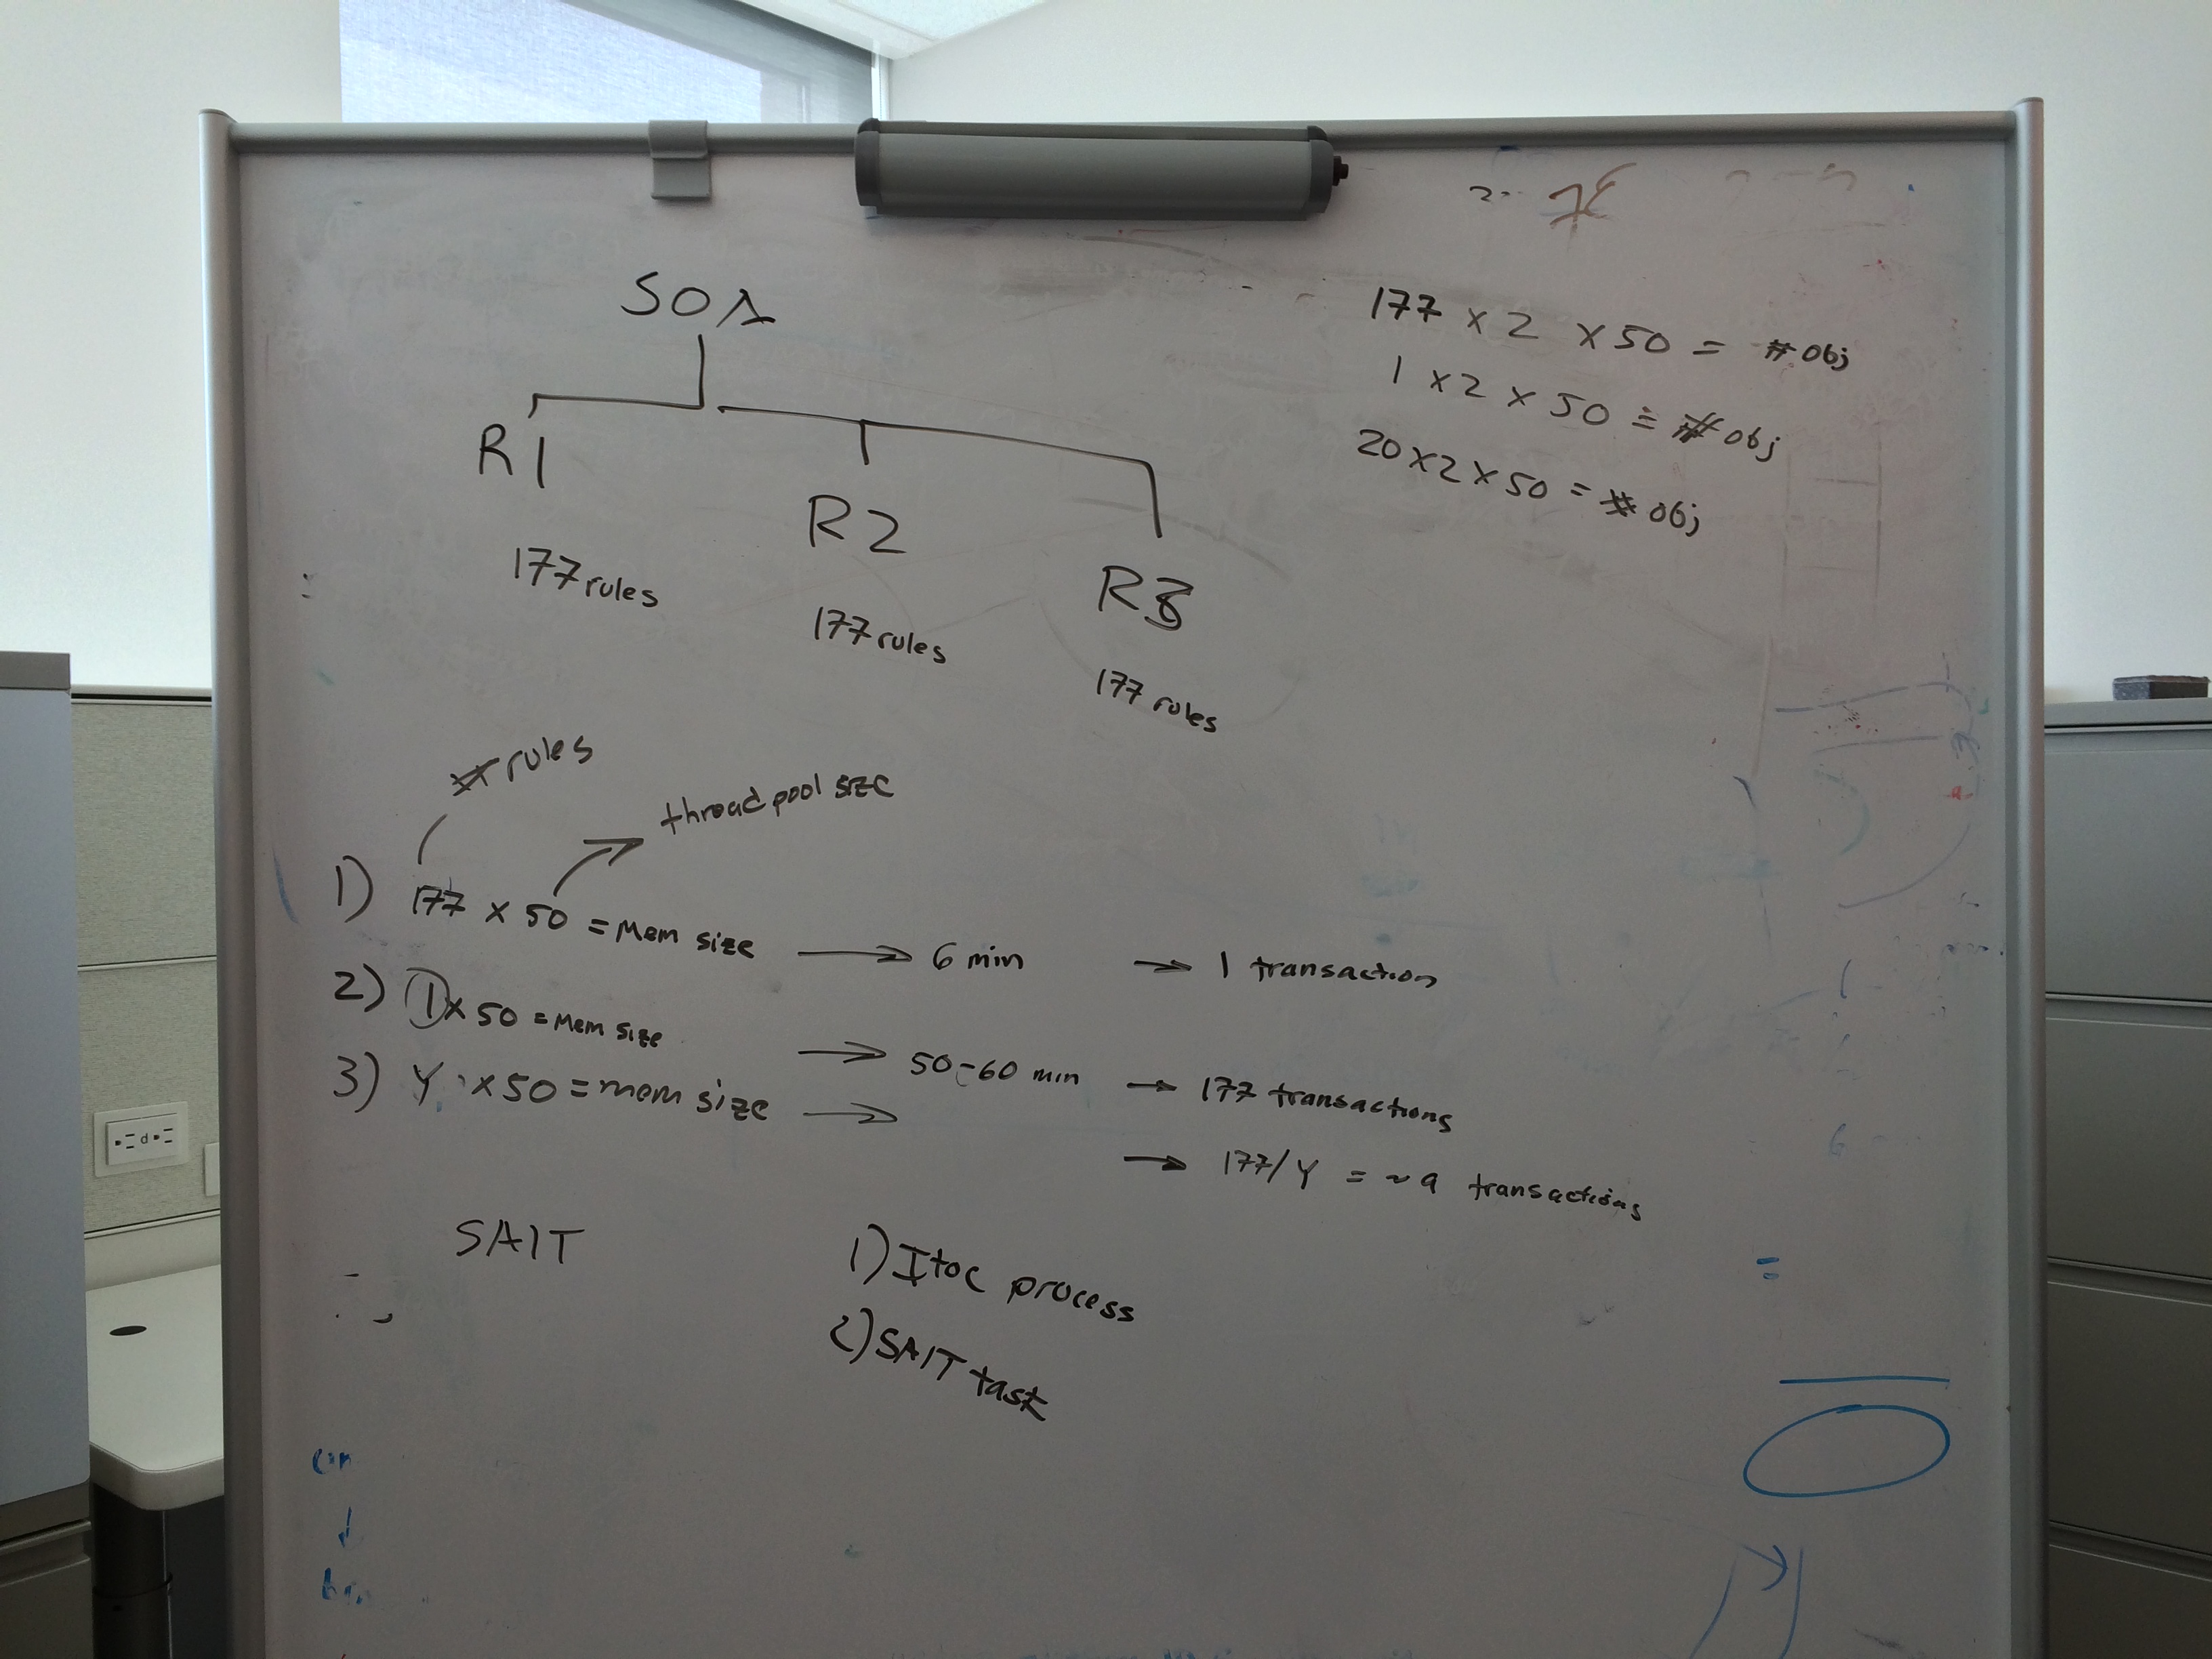 SOA
R1
R2
R3
177 rules
177 rules
177 rules
177 x 2 x 50 = # obj
1 x 2 x 50 = # obj
20 x 2 x 50 = # obj
# rules
thread pool size
1) 177 x 50 = Mem size → 6 min → 1 transaction
2) 1 x 50 = Mem size → 50-60 min → 177 transactions
3) Y x 50 = mem size → → 177/Y = ~9 transactions
SAIT
1) Itoc process
2) SAIT task